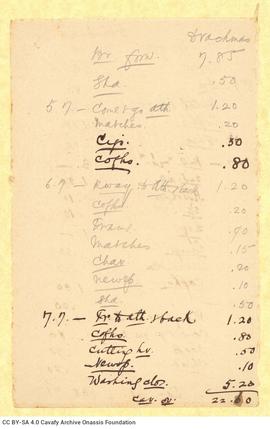 Drachmas
Br. forw. 7.85
Sha .50
5.7. — Come & go ath 1.20
Matches .20
Cigs. .50
Coffs. .80
6.7 — R.way to ath & back 1.20
Coffs. .20
Tram
Matches .15
Chax .20
Newsp. .10
Sha .50
7.7. — Fr to ath & back 1.20
Coffs. .80
Cutting hr. .50
Newsp. .10
Washing clos. 5.20
Car. ov. 22.60
CC BY-SA 4.0 Cavafy Archive Onassis Foundation